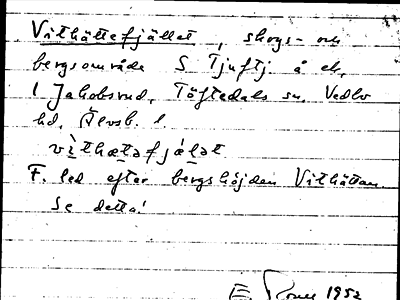 Vithättefjället, skogs- och
bergsområde S Tjuftj. å ek.
1 Jakobsrud, Töftedals sn, Vedbo
hd, Älvsb. l.
vìthætəfjä́lət
F. led efter bergshöjden Vithättan.
Se detta!
E. 1952